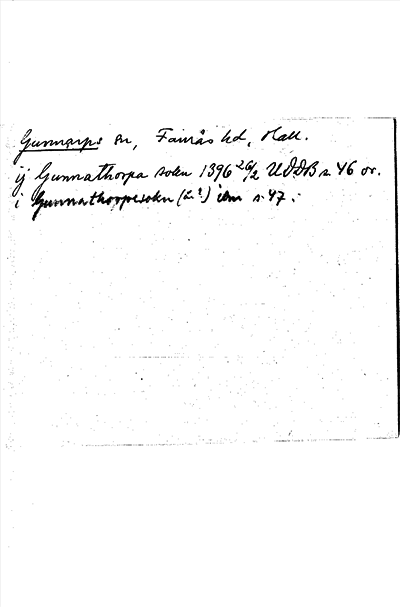 Gunnarps sn, Faurås hd, Hall.
ij Gunnathorpa sokn 1396 26/2 UDDB s. 46 or.
i Gunnathorpesokn (a?) ibm s. 47.